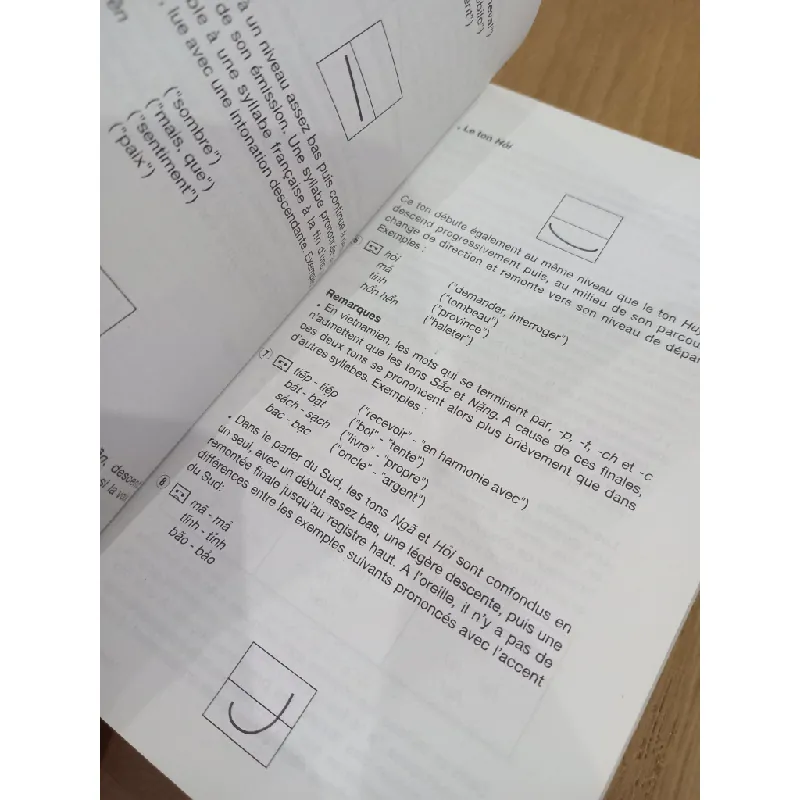 à un niveau assez bas puis continue
de son émission. Une syllabe
ble à une syllabe française à la fin d'une
, lue avec une intonation descendante.
("sombre")
("mais, que")
("sentiment")
("paix")
• Le ton Hỏi
Ce ton débute également au même niveau que le ton
descend progressivement puis, au milieu de son
change de direction et remonte vers son niveau de
Exemples :
6 hỏi ("demander, interroger")
mả ("tombeau")
tỉnh ("province")
hổn hển ("haleter")
Remarques
• En vietnamien, les mots qui se terminent par, -p, -t, -ch et -c
n'admettent que les tons Sắc et Nặng. A cause de ces finales,
ces deux tons se prononcent alors plus brièvement que dans
d'autres syllabes. Exemples :
7 tiếp - tiếp ("recevoir" - "en harmonie avec")
bát - bạt ("bol" - "tente")
sách - sạch ("livre" - "propre")
bác - bạc ("oncle" - "argent")
• Dans le parler du Sud, les tons Ngã et Hỏi sont confondus en
un seul, avec un début assez bas, une légère descente, puis une
remontée finale jusqu'au registre haut. A l'oreille, il n'y a pas de
différences entre les exemples suivants prononcés avec l'accent
du Sud:
8 mã - mả
tĩnh - tỉnh
bão - bảo